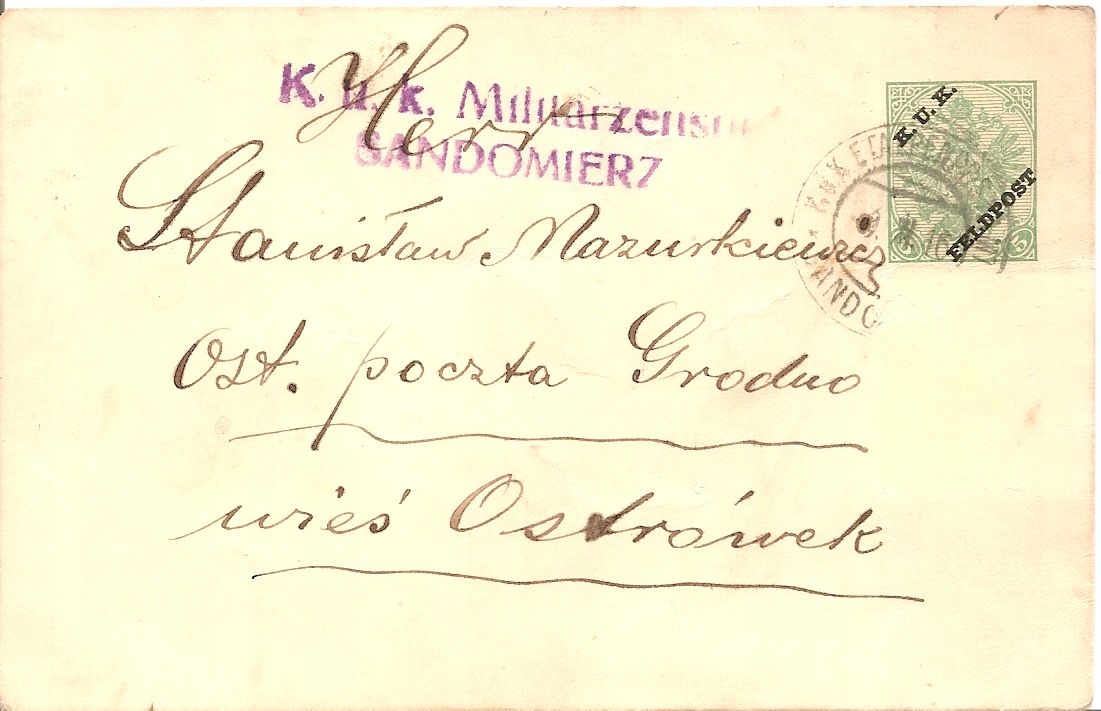 K. u. k. Militärzensur
SANDOMIERZ
Herr
Stanisław Mazurkiewicz
Ost. poczta Grodno
wieś Ostrówek
K. U. K.
FELDPOST
5
K.u.K. ETAPPEN
SANDO